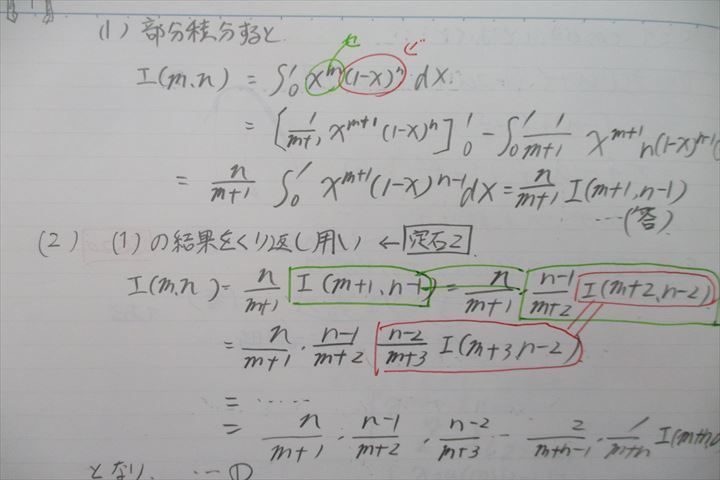 (1) 部分積分すると
n
I(m,n) = ∫₀¹ x^m (1-x)^n dx
= [1/(m+1) x^{m+1}(1-x)^n]₀¹ - ∫₀¹ 1/(m+1) x^{m+1} n(1-x)^{n-1}(
= n/(m+1) ∫₀¹ x^{m+1}(1-x)^{n-1}dx = n/(m+1) I(m+1,n-1)
…(答)
(2) (1)の結果をくり返し用い ← 定石2
I(m,n) = n/(m+1) I(m+1,n-1) = n/(m+1) · (n-1)/(m+2) I(m+2,n-2)
= n/(m+1) · (n-1)/(m+2) (n-2)/(m+3) I(m+3 n-2)
= ……
= n/(m+1) · (n-1)/(m+2) · (n-2)/(m+3) … 2/(m+n-1) · 1/(m+n) I(m+n,
となり, …①